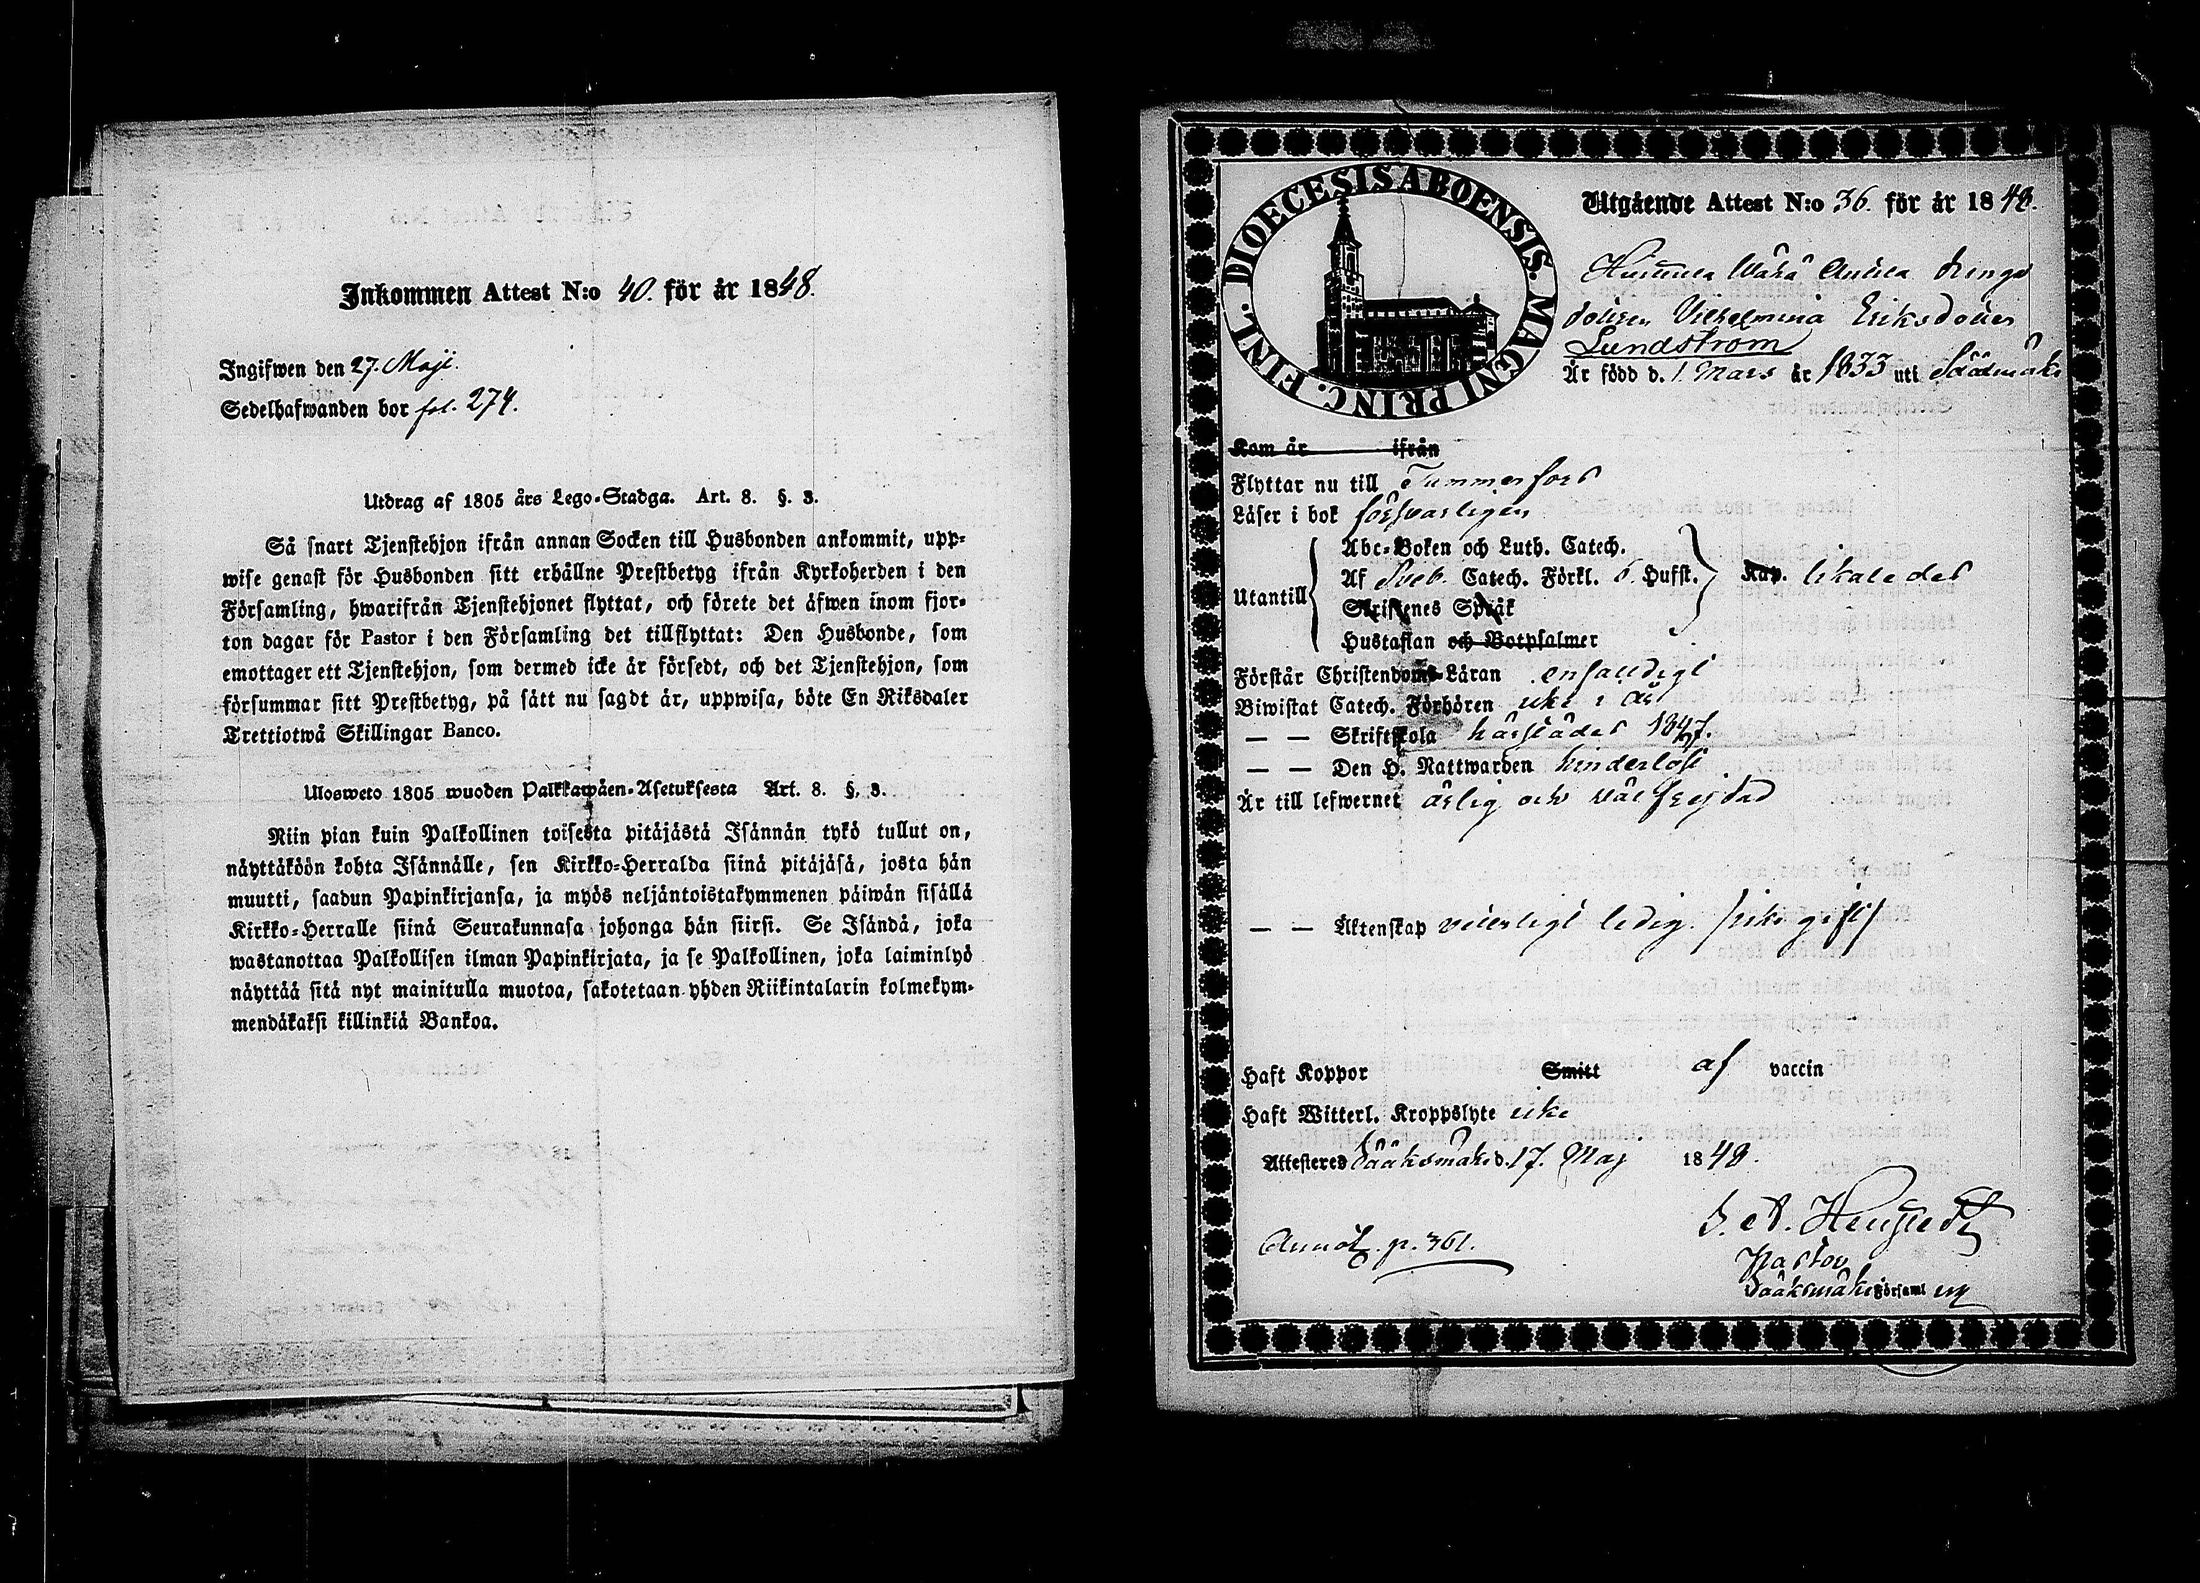 Inkommen Attest N:o 40. för år 1848.
Ingifwen den 27. Maji.
Sedelhafwanden bor fol. 274.
Utdrag af 1805 års Lego-Stadga. Art. 8. §. 3.
Så snart Tjenstehjon ifrån annan Socken till Husbonden ankommit, upp-
wise genast för Husbonden sitt erhållne Prestbetyg ifrån Kyrkoherden i den
Församling, hwarifrån Tjenstehjonet flyttat, och förete det äfwen inom fjor-
ton dagar för Pastor i den Församling det tillflyttat: Den Husbonde, som
emottager ett Tjenstehjon, som dermed icke är försedt, och det Tjenstehjon, som
försummar sitt Prestbetyg, på sätt nu sagdt är, uppwisa, böte En Riksdaler
Trettiotwå Skillingar Banco.
Ulosweto 1805 wuoden Palkkawäen-Asetuksesta Art. 8. §. 3.
Niin pian kuin Palkollinen toisesta pitäjästä Isännän tykö tullut on,
näyttäköön kohta Isännälle, sen Kirkko-Herralda siinä pitäjäsä, josta hän
muutti, saadun Papinkirjansa, ja myös neljäntoistakymmenen päiwän sisällä
Kirkko-Herralle siinä Seurakunnasa johonga hän siirsi. Se Isändä, joka
wastanottaa Palkollisen ilman Papinkirjata, ja se Palkollinen, joka laiminlyö
näyttää sitä nyt mainitulla muotoa, sakotetaan yhden Riikintalarin kolmekym-
mendäkaksi killinkiä Bankoa.
DIOECESIS ABOENSIS. MAGNI PRINC. FINL.
Utgående Attest N:o 36. för år 1848.
Wähä Anila
dotren Vilhelmina Eriksdotter
Lundström
Är född d. 1. Mars år 1833 uti Sääxmäki
Kom år ifrån
Flyttar nu till Tammerfors
Läser i bok försvarligen
Utantill
Abc-Boken och Luth. Catech.
Af Sveb. Catech. Förkl. 6. Hufst.
Skriftenes Språk
Hustaflan och Botpsalmer
Kap. likaledes
Förstår Christendoms-Läran enfaldigt
Biwistat Catech. Förhören icke i år
— — Skriftskola härstädes 1847.
— — Den H. Nattwarden hinderlöst
Är till lefwernet ärlig och väl frejdad
— — Äktenskap veterligt ledig. /icke gift/
Haft Koppor Smitt af vaccin
Haft Witterl. Kroppslyte icke
Attesteres Sääksmäki d. 17. Maj 1848.
Annot. p. 361.
Pastor
Sääksmäki Församl